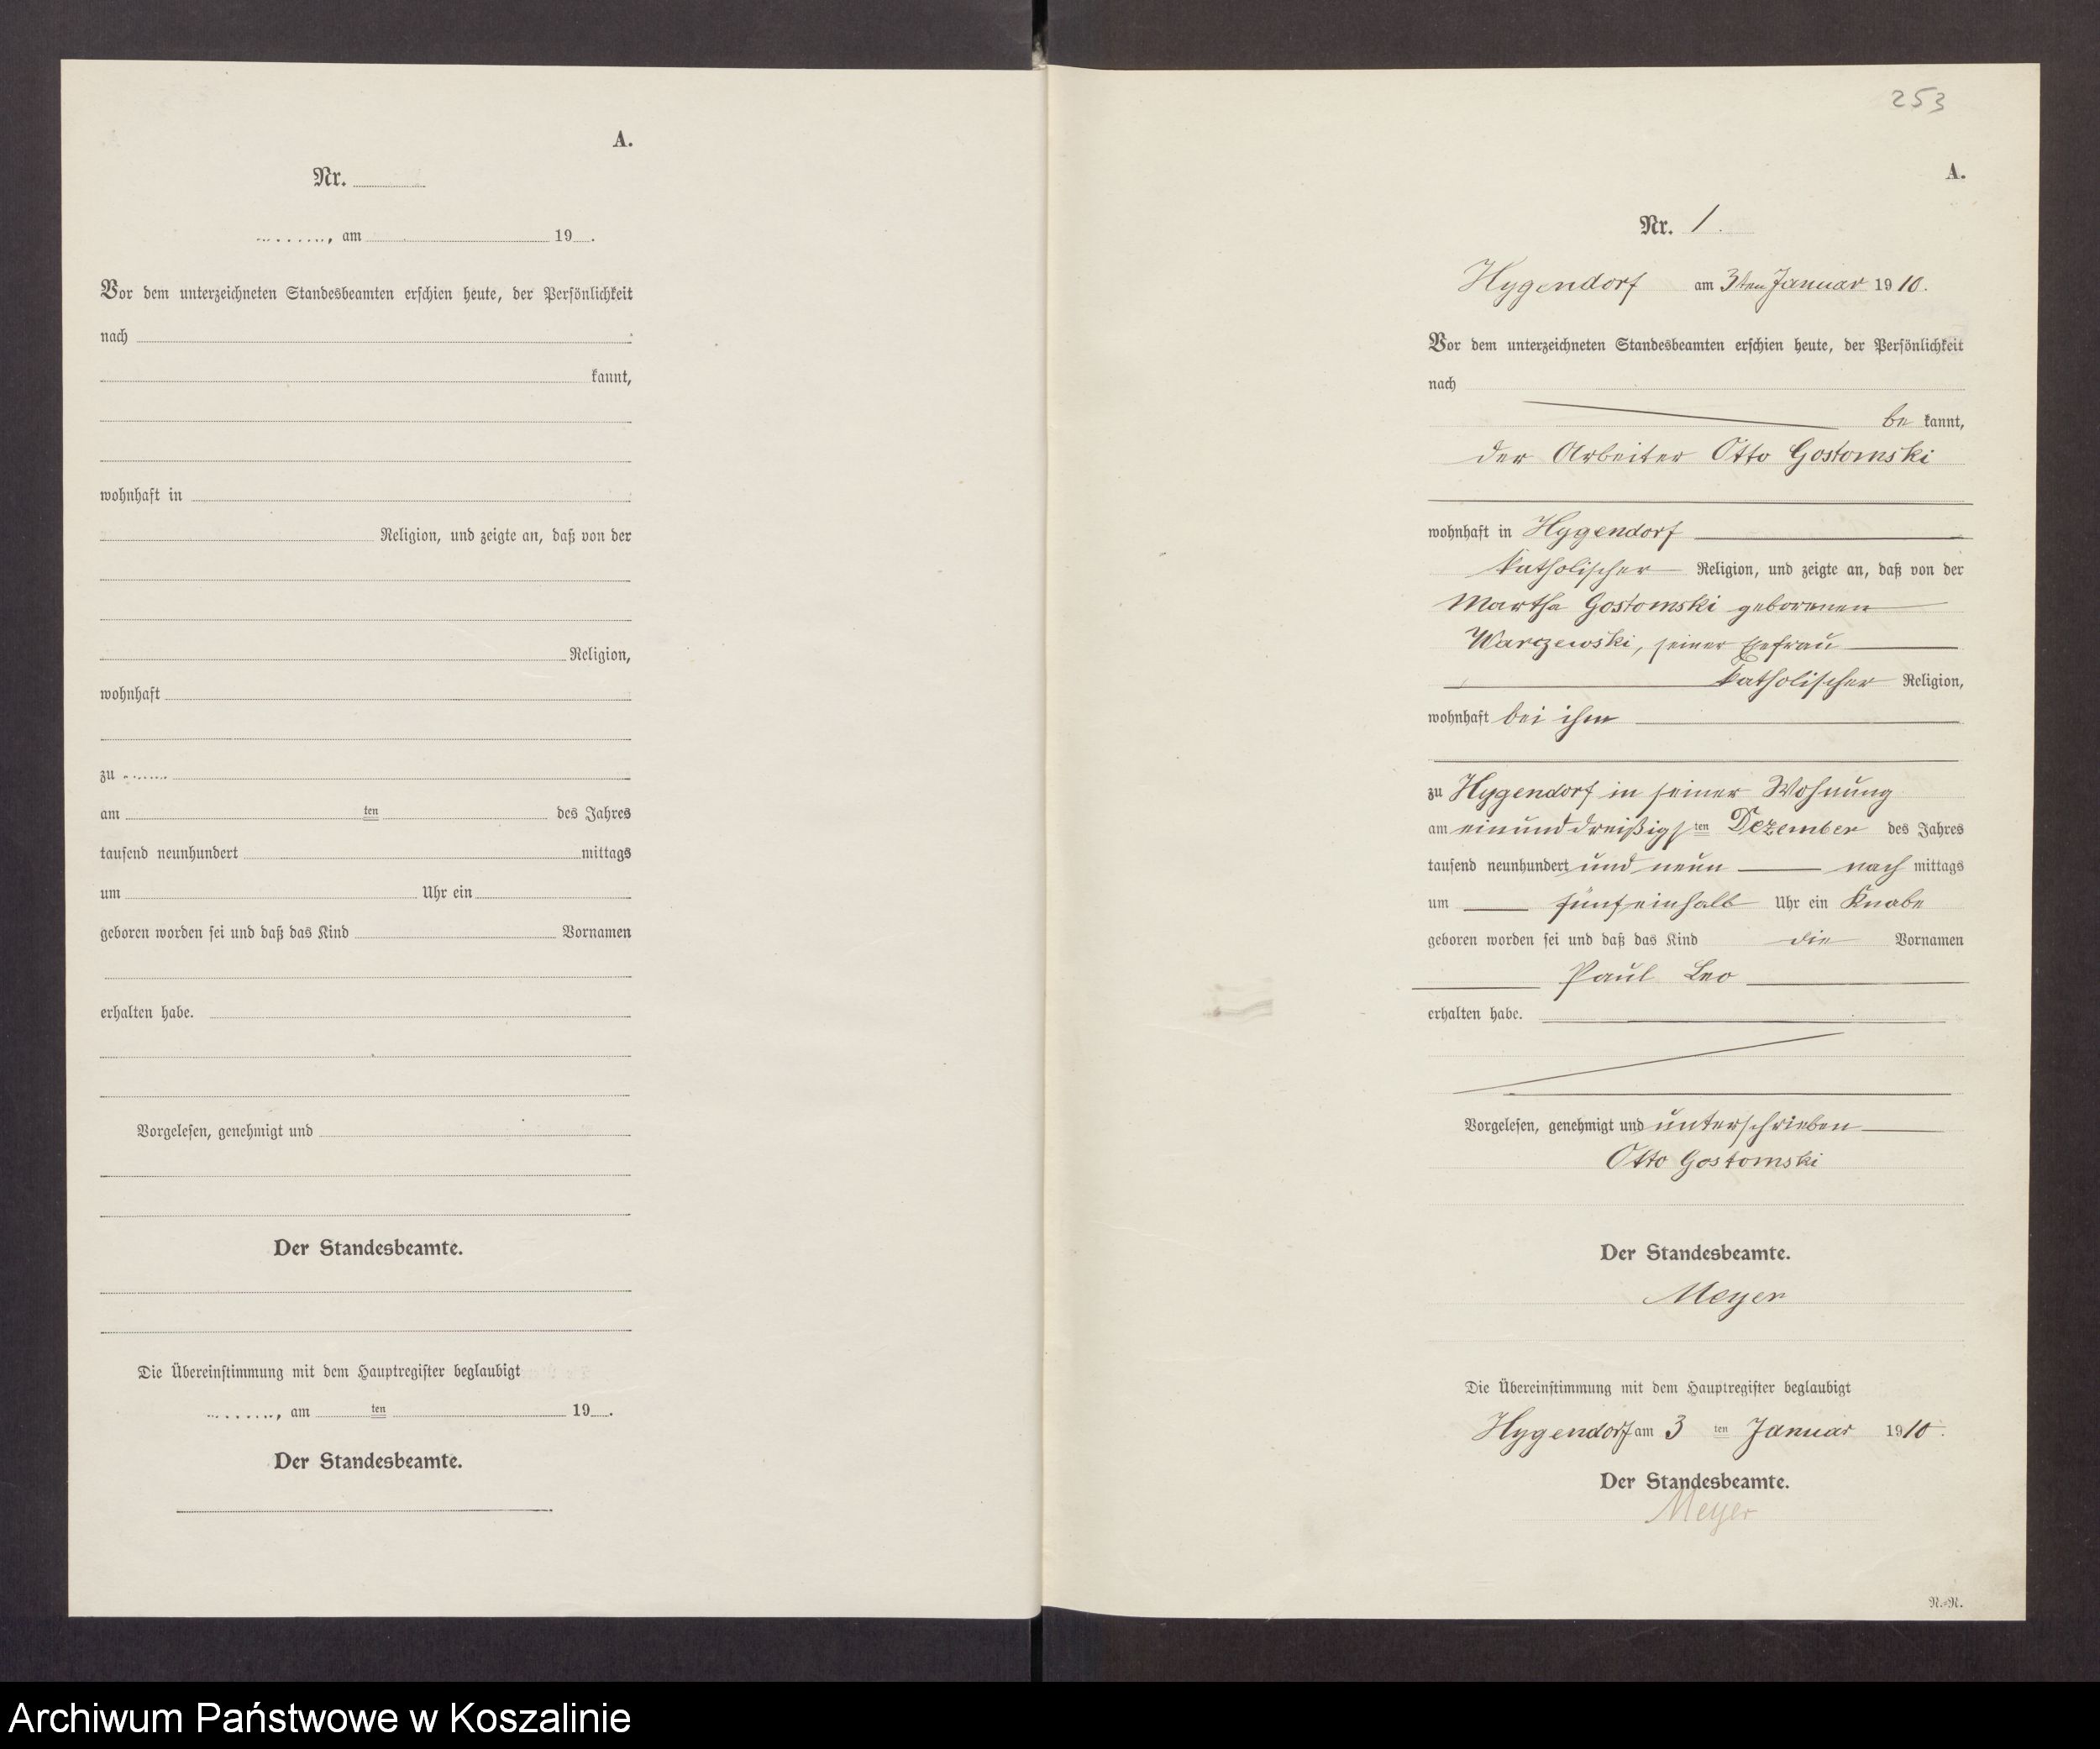 A.
Nr.
, am 19 .
Vor dem unterzeichneten Standesbeamten erschien heute, der Persönlichkeit
nach
kannt,
wohnhaft in
Religion, und zeigte an, daß von der
Religion,
wohnhaft
zu
am ten des Jahres
tausend neunhundert mittags
um Uhr ein
geboren worden sei und daß das Kind Vornamen
erhalten habe.
Vorgelesen, genehmigt und
Der Standesbeamte.
Die Übereinstimmung mit dem Hauptregister beglaubigt
, am ten 19 .
Der Standesbeamte.
253
A.
Nr. 1.
Hygendorf am 3ten Januar 1910.
Vor dem unterzeichneten Standesbeamten erschien heute, der Persönlichkeit
nach
be kannt,
der Arbeiter Otto Gostomski
wohnhaft in Hygendorf
katholischer Religion, und zeigte an, daß von der
Martha Gostomski geborenen
Warczewski, seiner Ehefrau
katholischer Religion,
wohnhaft bei ihm
zu Hygendorf in seiner Wohnung
am einunddreißigsten Dezember des Jahres
tausend neunhundert und neun nach mittags
um fünfeinhalb Uhr ein Knabe
geboren worden sei und daß das Kind die Vornamen
Paul Leo
erhalten habe.
Vorgelesen, genehmigt und unterschrieben
Otto Gostomski
Der Standesbeamte.
Meyer
Die Übereinstimmung mit dem Hauptregister beglaubigt
Hygendorf am 3 ten Januar 1910.
Der Standesbeamte.
Meyer
N.=N.
Archiwum Państwowe w Koszalinie